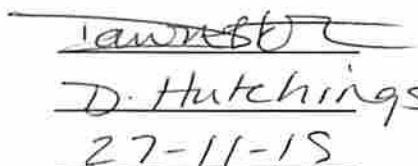 D. Hutchings
27-11-15